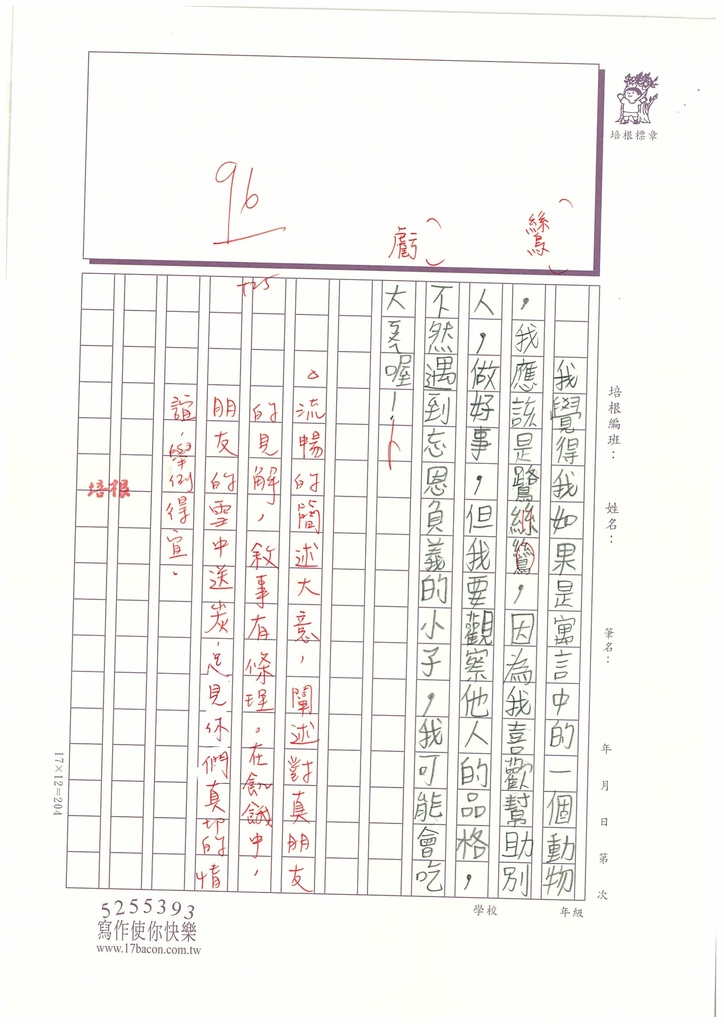 培根標章
96
鷥
虧
+25
培根編班：
姓名：
筆名：
年 月 日 第 次
年級
學校
我覺得我如果是寓言中的一個動物
，我應該是鷺絲鷥，因為我喜歡幫助別
人，做好事，但我要觀察他人的品格，
不然遇到忘恩負義的小子，我可能會吃
大虧喔！
。流暢的簡述大意，闡述對真朋友
的見解，敘事有條理。在飢餓中，
朋友的雪中送炭，足見你們真切的情
誼，舉例得宜。
培根
17×12=204
5255393
寫作使你快樂
www.17bacon.com.tw